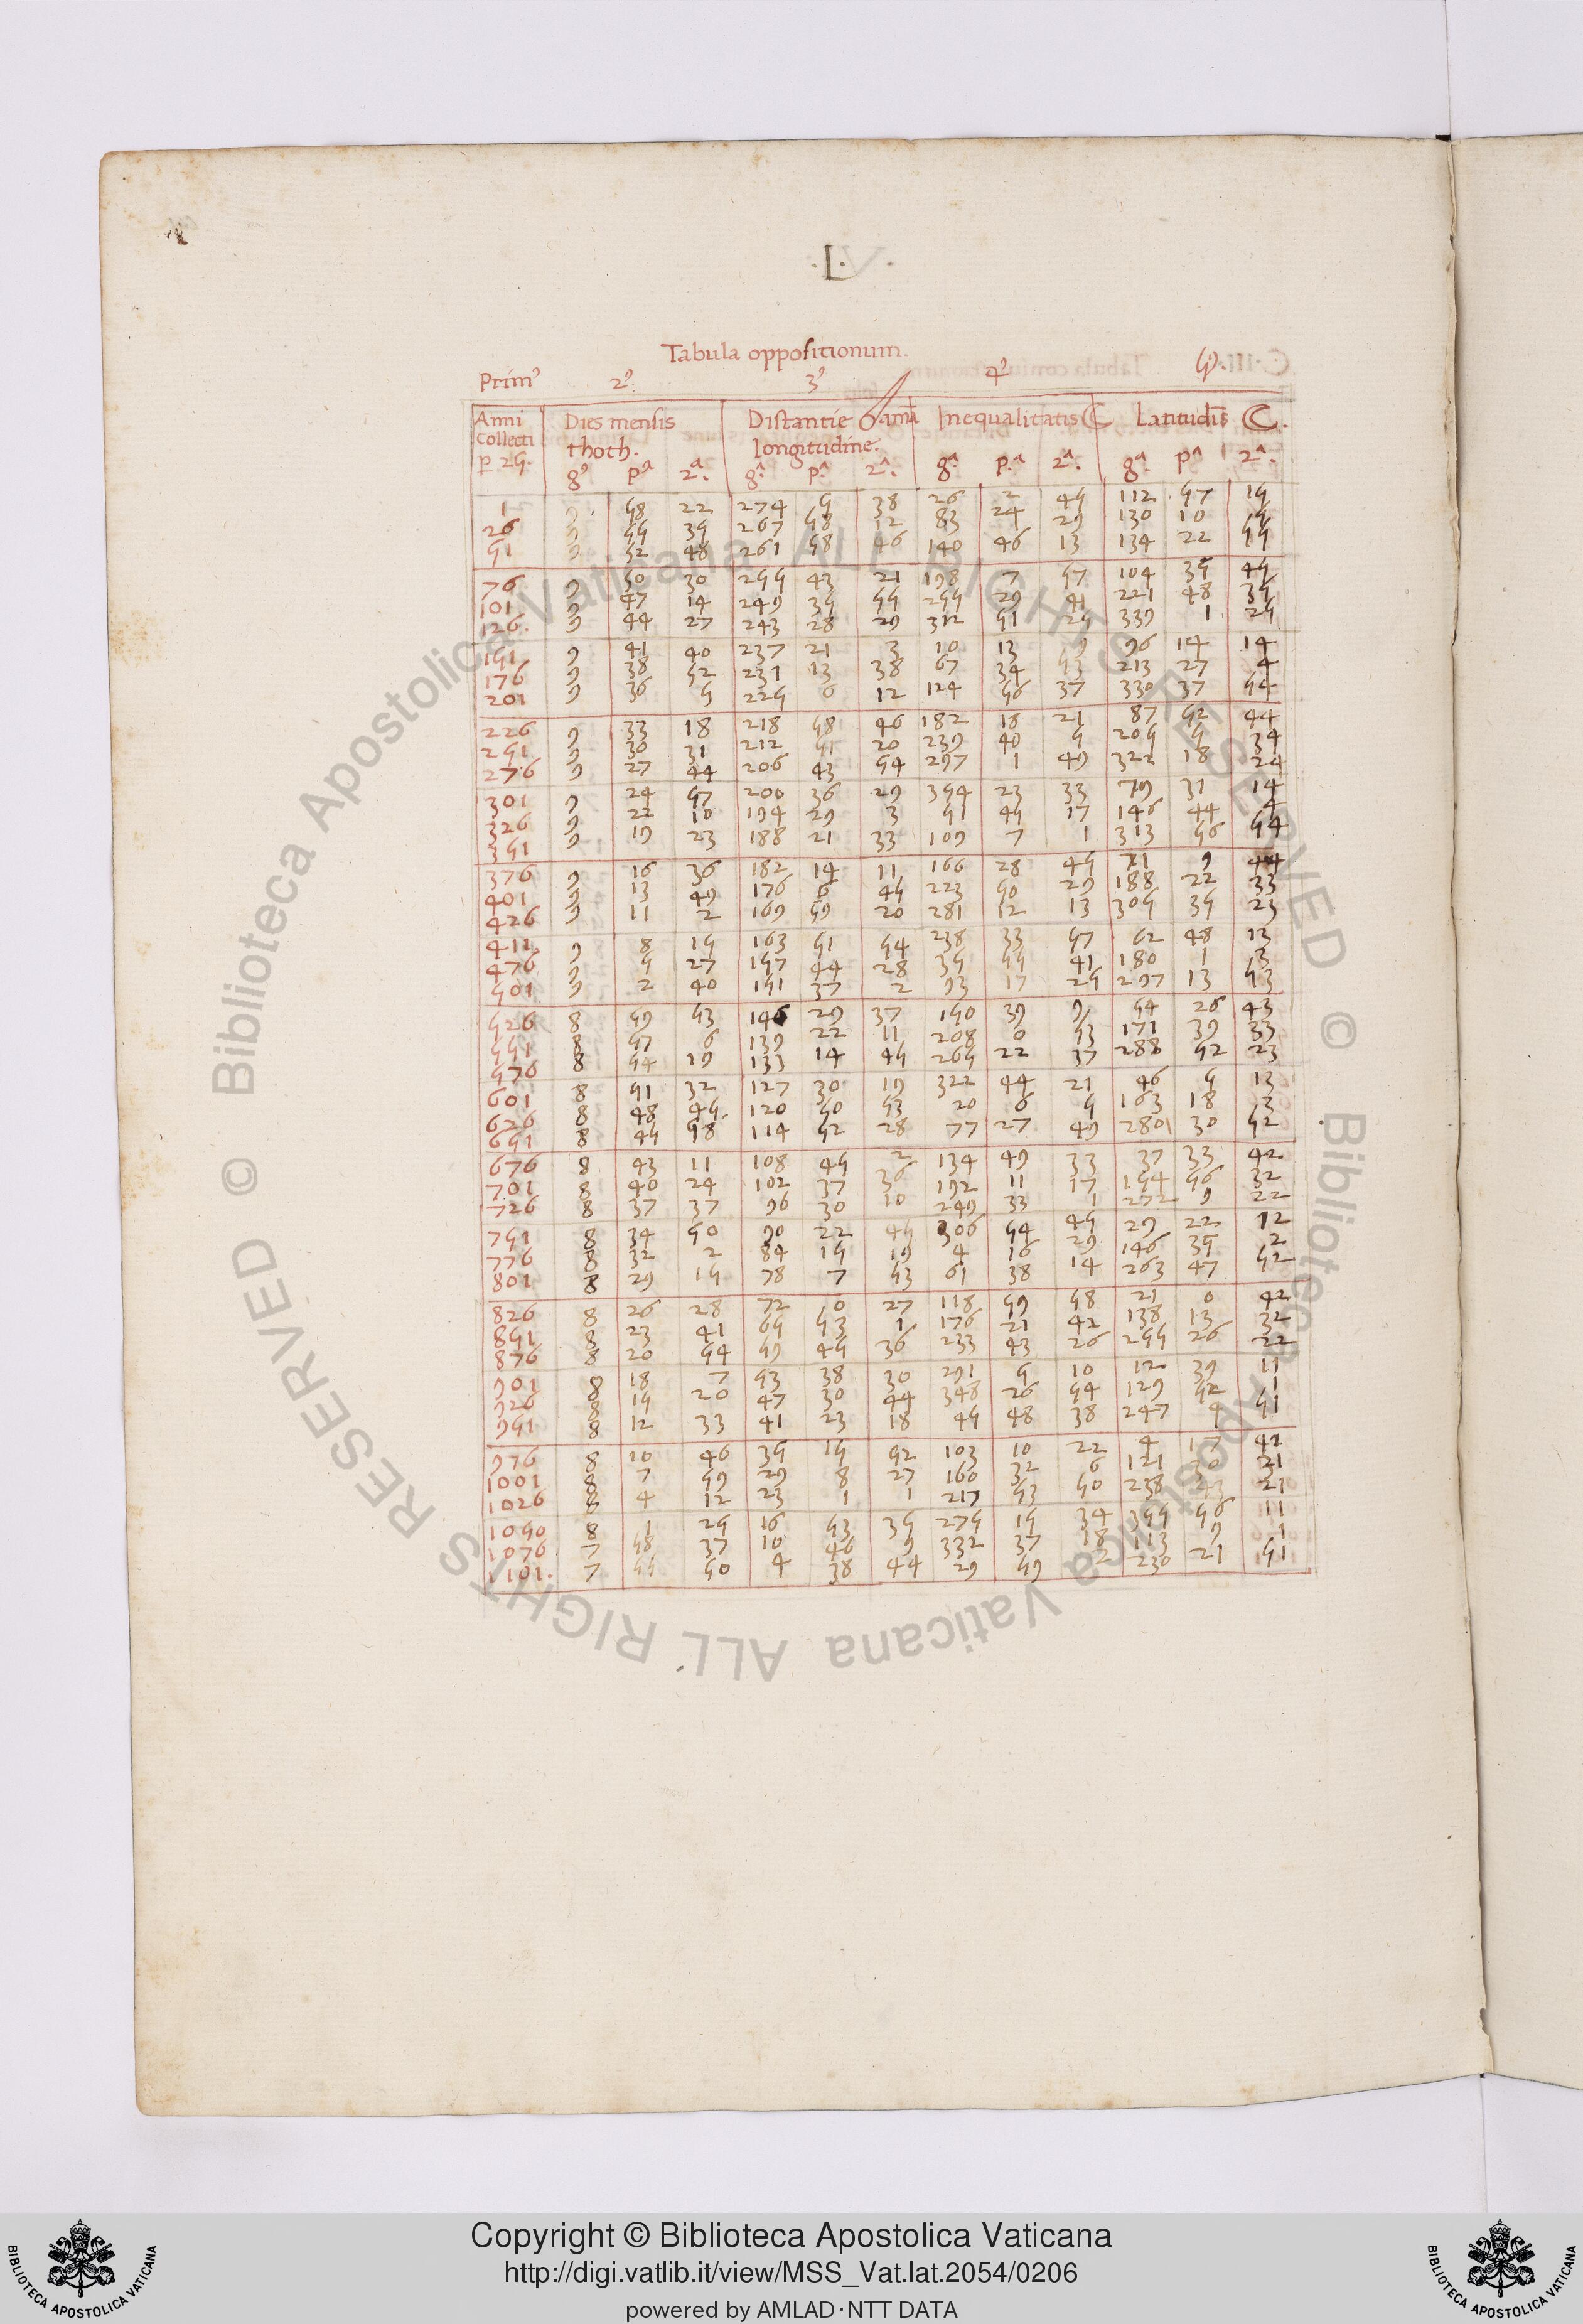 ·L·
Tabula oppositionum.
Prim⁹ 2⁹ 3⁹ 4⁹ 5⁹
Anni Dies mensis Distantie Inequalitatis ☾ Latitudis ☾.
collecti thoth. longitudine.
p 25. g⁹ pᵃ 2ᵃ. gᵃ pᵃ 2ᵃ. gᵃ. p.ᵃ 2ᵃ. gᵃ. pᵃ 2ᵃ.
1 9 58 22 274 5 38 26 2 45 112 57 15
26 9 55 35 267 58 12 83 24 29 130 10 5
51 9 52 48 261 58 46 140 46 13 134 22 55
76 9 50 30 255 43 21 198 7 57 104 35 45
101 9 47 14 249 35 55 255 29 41 221 48 35
126. 9 44 27 243 28 29 312 51 25 339 1 25
151 9 41 40 237 21 3 10 13 9 96 14 14
176 9 38 52 231 13 38 67 34 53 213 27 4
201 9 36 5 225 6 12 124 56 37 330 37 54
226 9 33 18 218 58 46 182 18 21 87 52 44
251 9 30 31 212 51 20 239 40 5 205 5 34
276 9 27 44 206 43 54 297 1 49 322 18 24
301 9 24 57 200 36 29 354 23 33 79 31 14
326 9 22 10 194 29 3 51 45 17 146 44 4
351 9 19 23 188 21 33 109 7 1 313 56 54
376 9 16 36 182 14 11 166 28 45 71 9 44
401 9 13 49 176 6 45 223 50 29 188 22 33
426 9 11 2 169 59 20 281 12 13 305 35 23
411. 9 8 15 163 51 54 238 33 57 62 48 13
476 9 5 27 157 44 28 35 55 41 180 1 3
501 9 2 40 151 37 2 93 17 25 297 13 53
526 8 59 53 146 29 37 150 39 9 54 26 43
551 8 57 6 139 22 11 208 0 53 171 39 33
576 8 54 19 133 14 45 265 22 37 288 52 23
601 8 51 32 127 30 19 322 44 21 46 5 13
626 8 48 45. 120 50 53 20 6 5 163 18 3
651 8 45 58 114 52 28 77 27 49 280 30 52
676 8 43 11 108 45 2 134 49 33 37 33 42
701 8 40 24 102 37 36 192 11 17 154 56 32
726 8 37 37 96 30 10 249 33 1 272 9 22
751 8 34 50 90 22 45 306 54 45 29 22 12
776 8 32 2 84 15 19 4 16 29 146 35 2
801 8 29 15 78 7 53 61 38 14 263 47 52
826 8 26 28 72 0 27 118 59 58 21 0 42
851 8 23 41 65 53 1 176 21 42 138 13 32
876 8 20 54 59 45 36 233 43 26 255 26 22
901 8 18 7 53 38 30 291 5 10 12 39 11
926 8 15 20 47 30 44 348 26 54 129 52 1
951 8 12 33 41 23 18 45 48 38 247 4 51
976 8 10 46 35 15 52 103 10 22 4 17 42
1001 8 7 59 29 8 27 160 32 6 121 30 21
1026 8 4 12 23 1 1 217 53 50 238 43 21
1050 8 1 25 16 53 35 275 15 34 355 56 11
1076 7 58 37 10 46 9 332 37 18 113 9 1
1101. 7 55 50 4 38 44 29 59 2 230 21 51
© Biblioteca Apostolica Vaticana ALL RIGHTS RESERVED © Biblioteca Apostolica Vaticana ALL RIGHTS RESERVED
BIBLIOTECA APOSTOLICA VATICANA
Copyright © Biblioteca Apostolica Vaticana
http://digi.vatlib.it/view/MSS_Vat.lat.2054/0206
powered by AMLAD·NTT DATA
BIBLIOTECA APOSTOLICA VATICANA